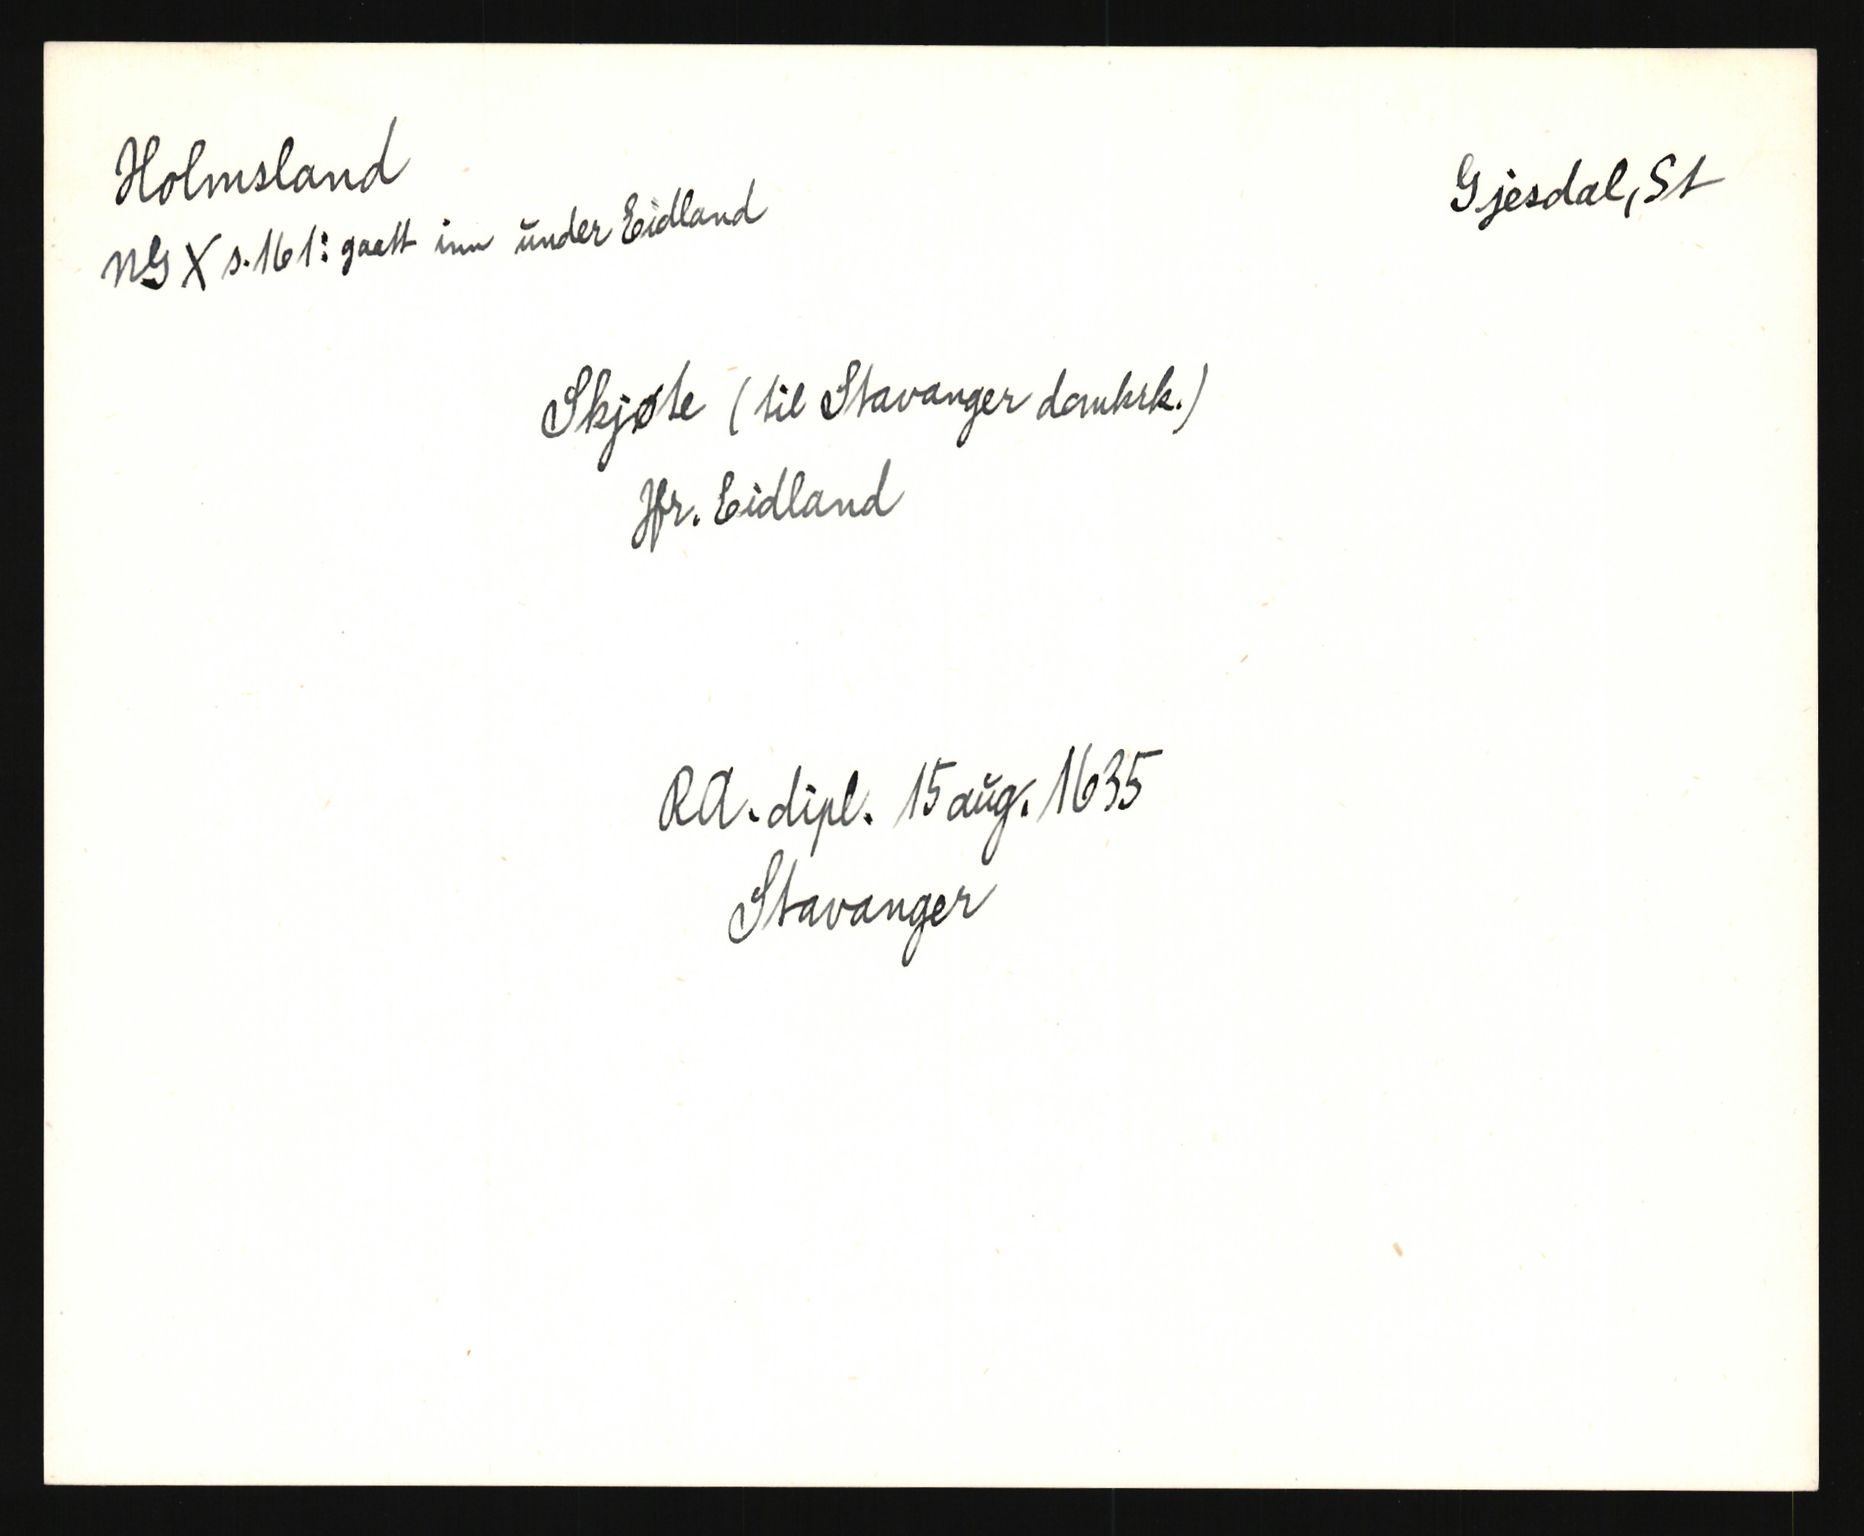 Holmsland
Gjesdal, St
NG X s. 161: gaatt inn under Eidland
Skjøte (til Stavanger domkrk.)
Jfr. Eidland
RA. dipl. 15 aug. 1635
Stavanger